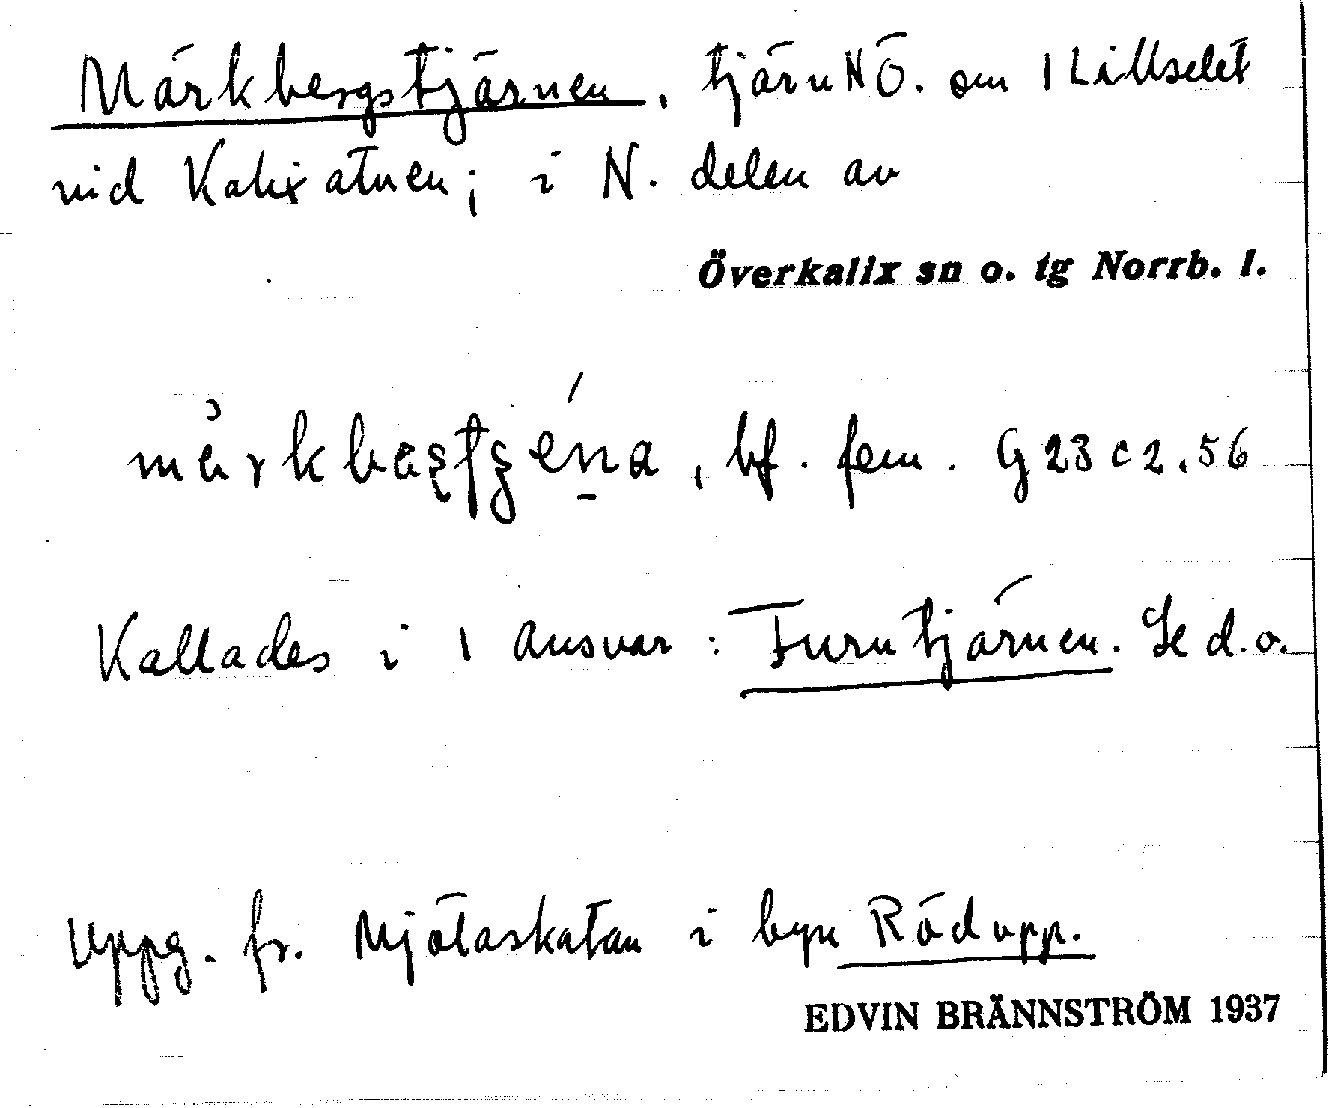 Märkbergstjärnen, tjärn NÖ. om 1 Lillselet
vid Kalixälven; i N. delen av
Överkalix sn o. tg Norrb. l.
bf. fem. G 23 c 2.56
Kallades i 1 ansvar: Furutjärnen. Se d.o.
Uppg. fr. Mjölaskatan i byn Rödupp.
EDVIN BRÄNNSTRÖM 1937